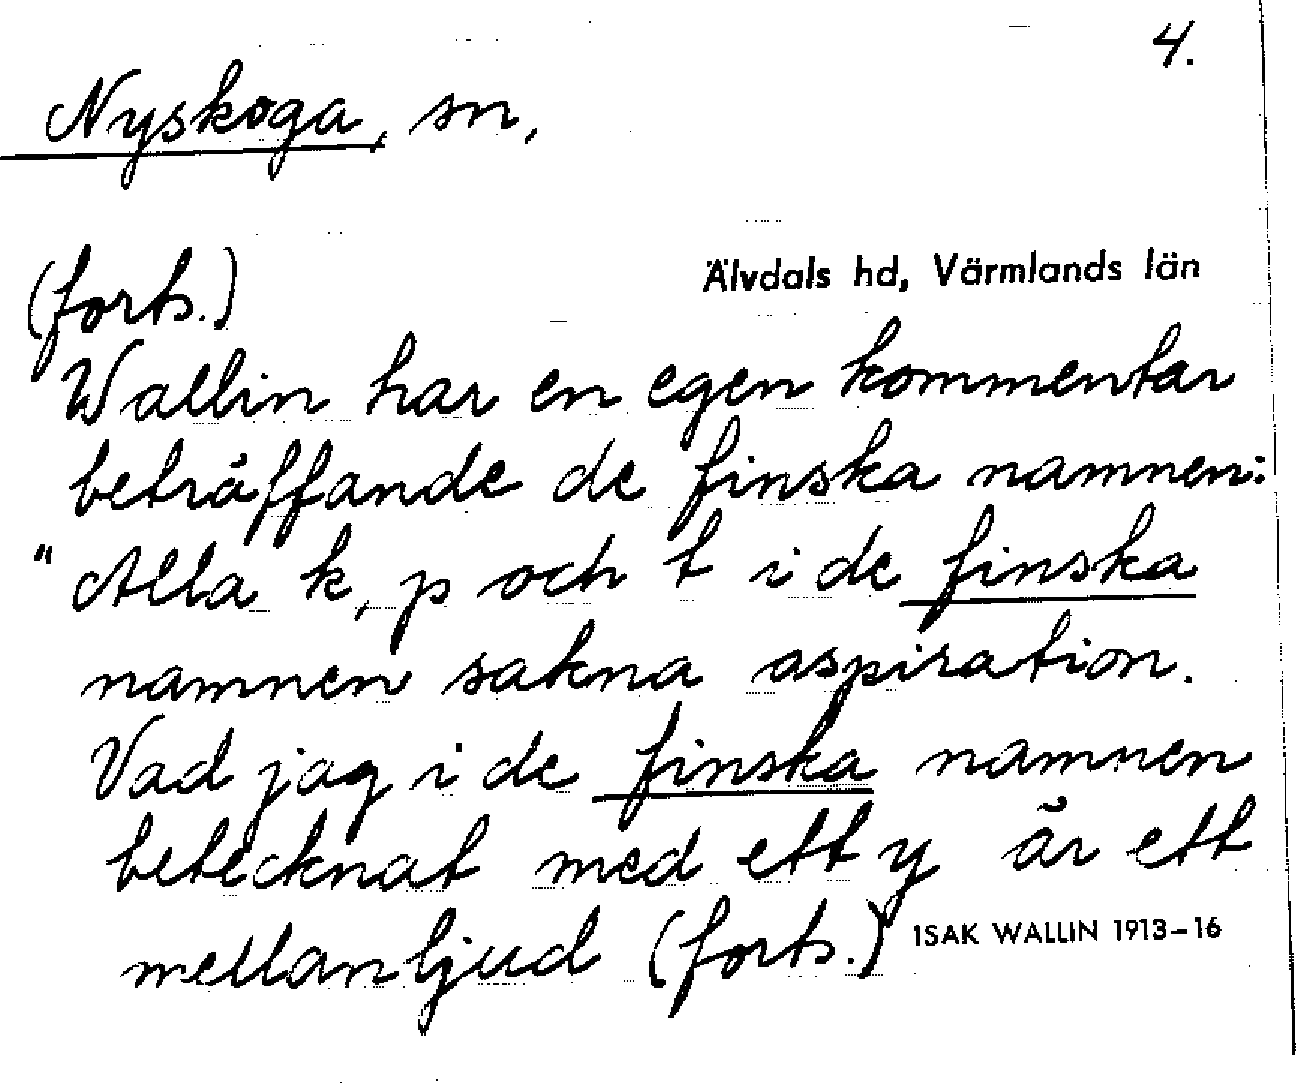 4.
Nyskoga, sn,
Älvdals hd, Värmlands län
(forts.)
Wallin har en egen kommentar
beträffande de finska namnen:
"Alla k, p och t i de finska
namnen sakna aspiration.
Vad jag i de finska namnen
betecknat med ett y är ett
mellanljud (forts.)
ISAK WALLIN 1913-16